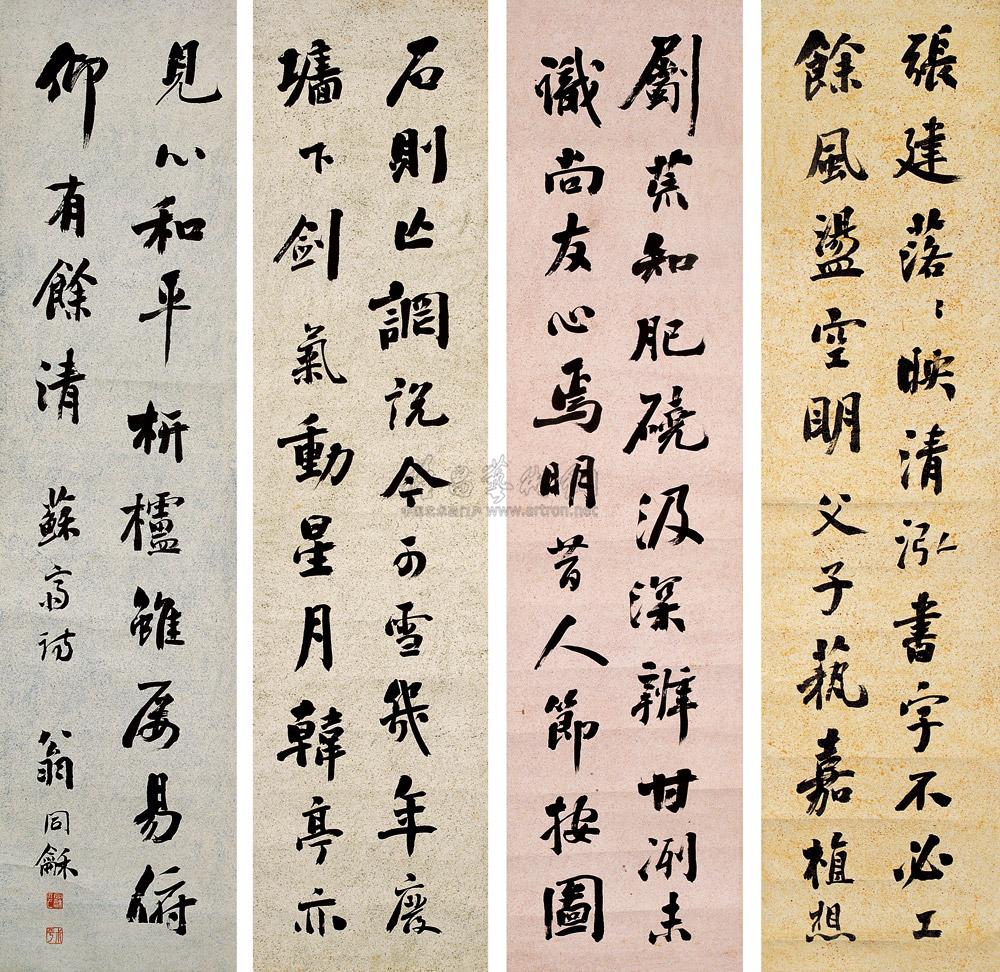 張建落〻映清泓書字不必工
餘風盪空明父子蓺嘉植想
劚荒知肥磽汲深辦甘冽未
識尚友心焉明昔人節按圖
石則亡調說今可雪幾年廢
墻下劍氣動星月韓亭亦
見心和平枅櫨雖屡易俯
仰有餘清
蘇齋詩
翁同龢
www.artron.net